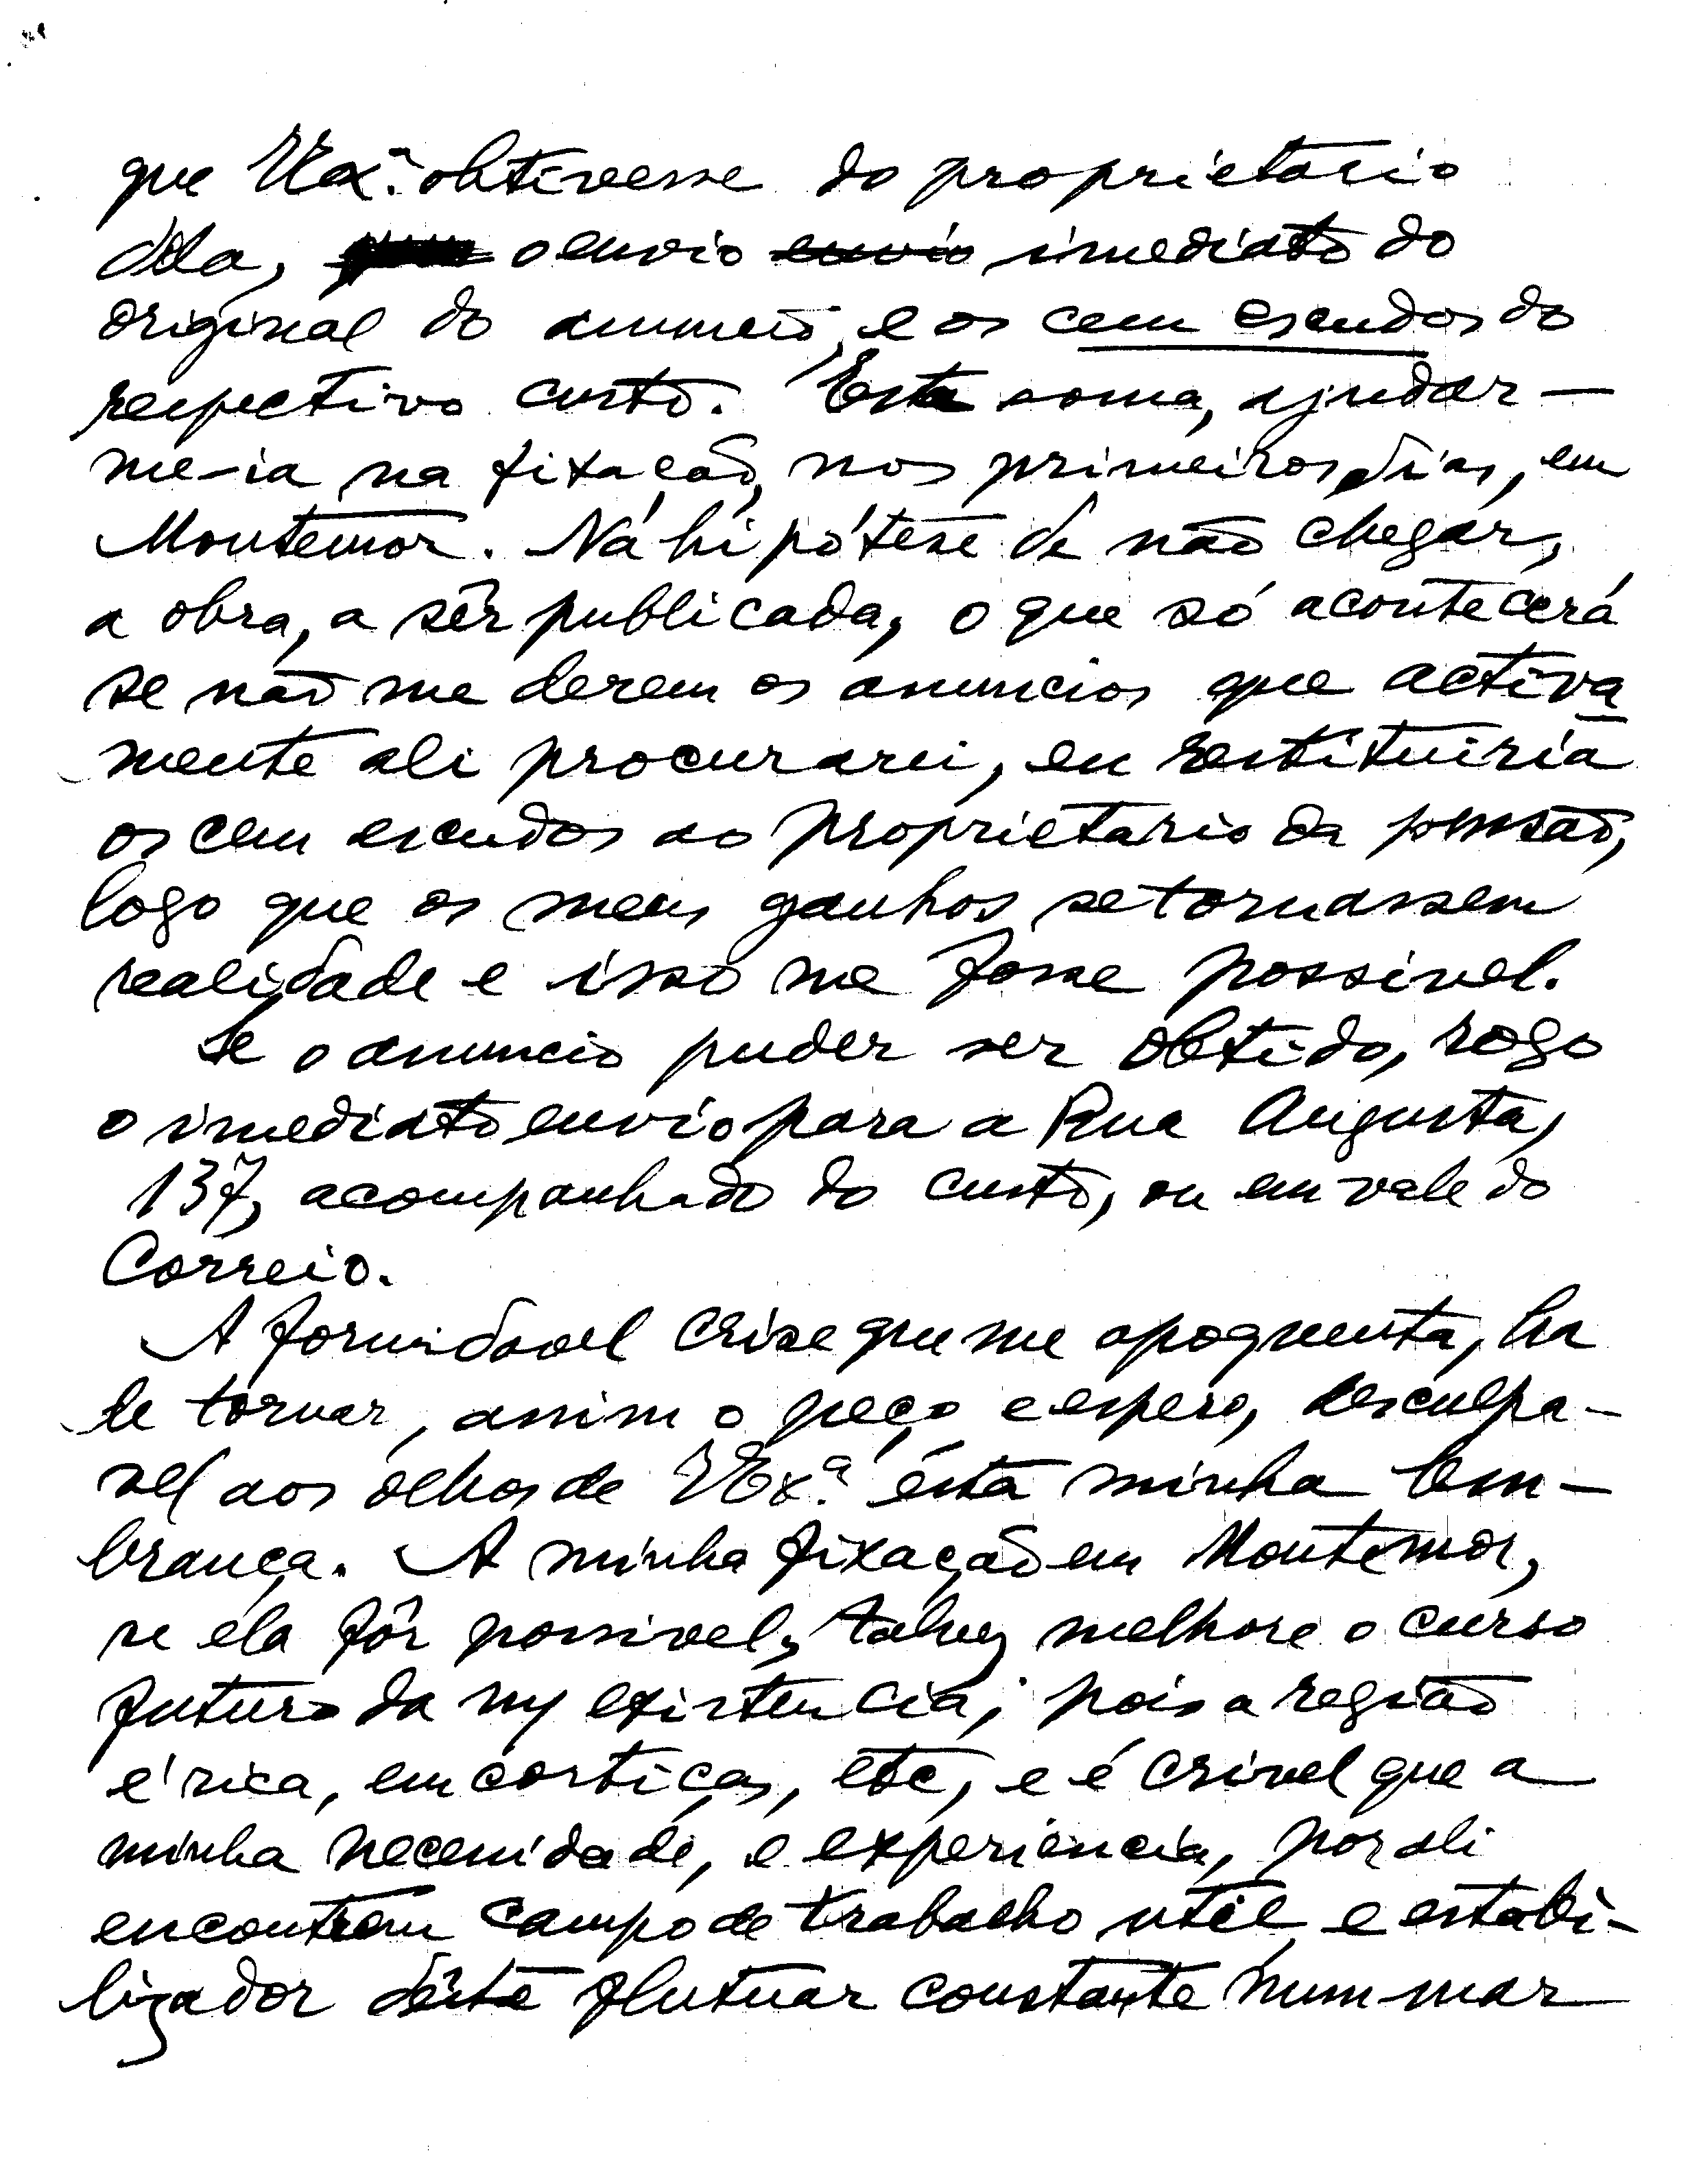 que VExª. obtivesse do proprietario
dela, o envio envio imediato do
original do anuncio, e os cem escudos do
respectivo custo. Esta soma, ajudar-
me-ia na fixação, nos primeiros dias, em
Montemor. Na hipótese de não chegar,
a obra, a sêr publicada, o que só acontecerá
se não me derem os anuncios que activa
mente ali procurarei, eu restituiria
os cem escudos ao proprietario da pensão,
logo que os meus ganhos se tornassem
realidade e isso me fosse possivel.
Se o anuncio puder ser obtido, rogo
o imediato envio para a Rua Augusta,
137, acompanhado do custo, ou em vale do
Correio.
A formidavel crise que me apoquenta, ha
de tornar, assim o peço e espero, desculpa-
vel aos olhos de VExª. ésta minha lem-
brança. A minha fixação em Montemor,
se éla fôr possivel, talvez melhore o curso
futuro da mª existencia; pois a região
é rica, em cortiças, etc, e é crivel que a
minha necessidade, e experiencia, por ali
encontrem campo de trabalho util e estabi-
lizador dêste flutuar constante num mar